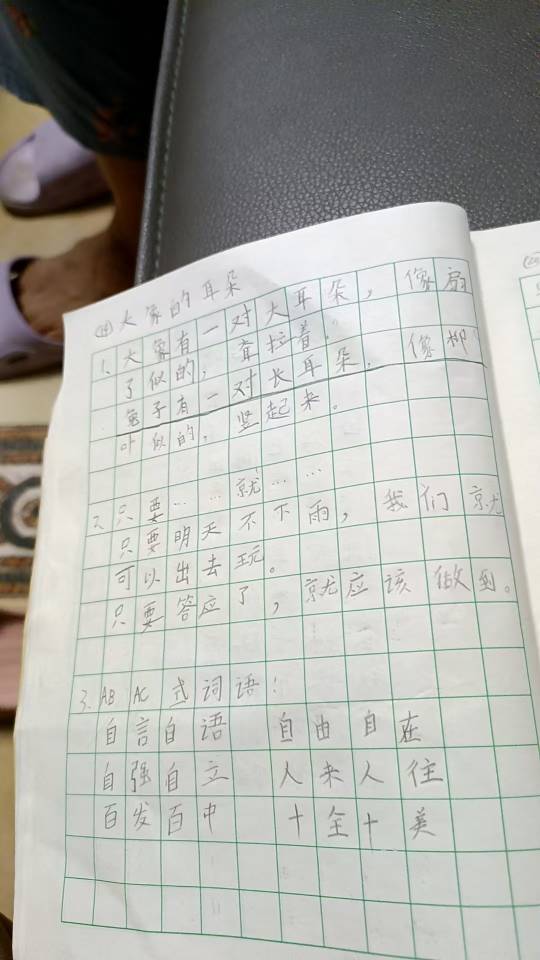 (19) 大象的耳朵
1、大象有一对大耳朵，像扇
了似的，耷拉着。
兔子有一对长耳朵，像柳
叶似的，竖起来。
2、只要……就……
只要明天不下雨，我们就
可以出去玩。
只要答应了，就应该做到。
3、ABAC式词语：
自言自语 自由自在
自强自立 人来人往
百发百中 十全十美